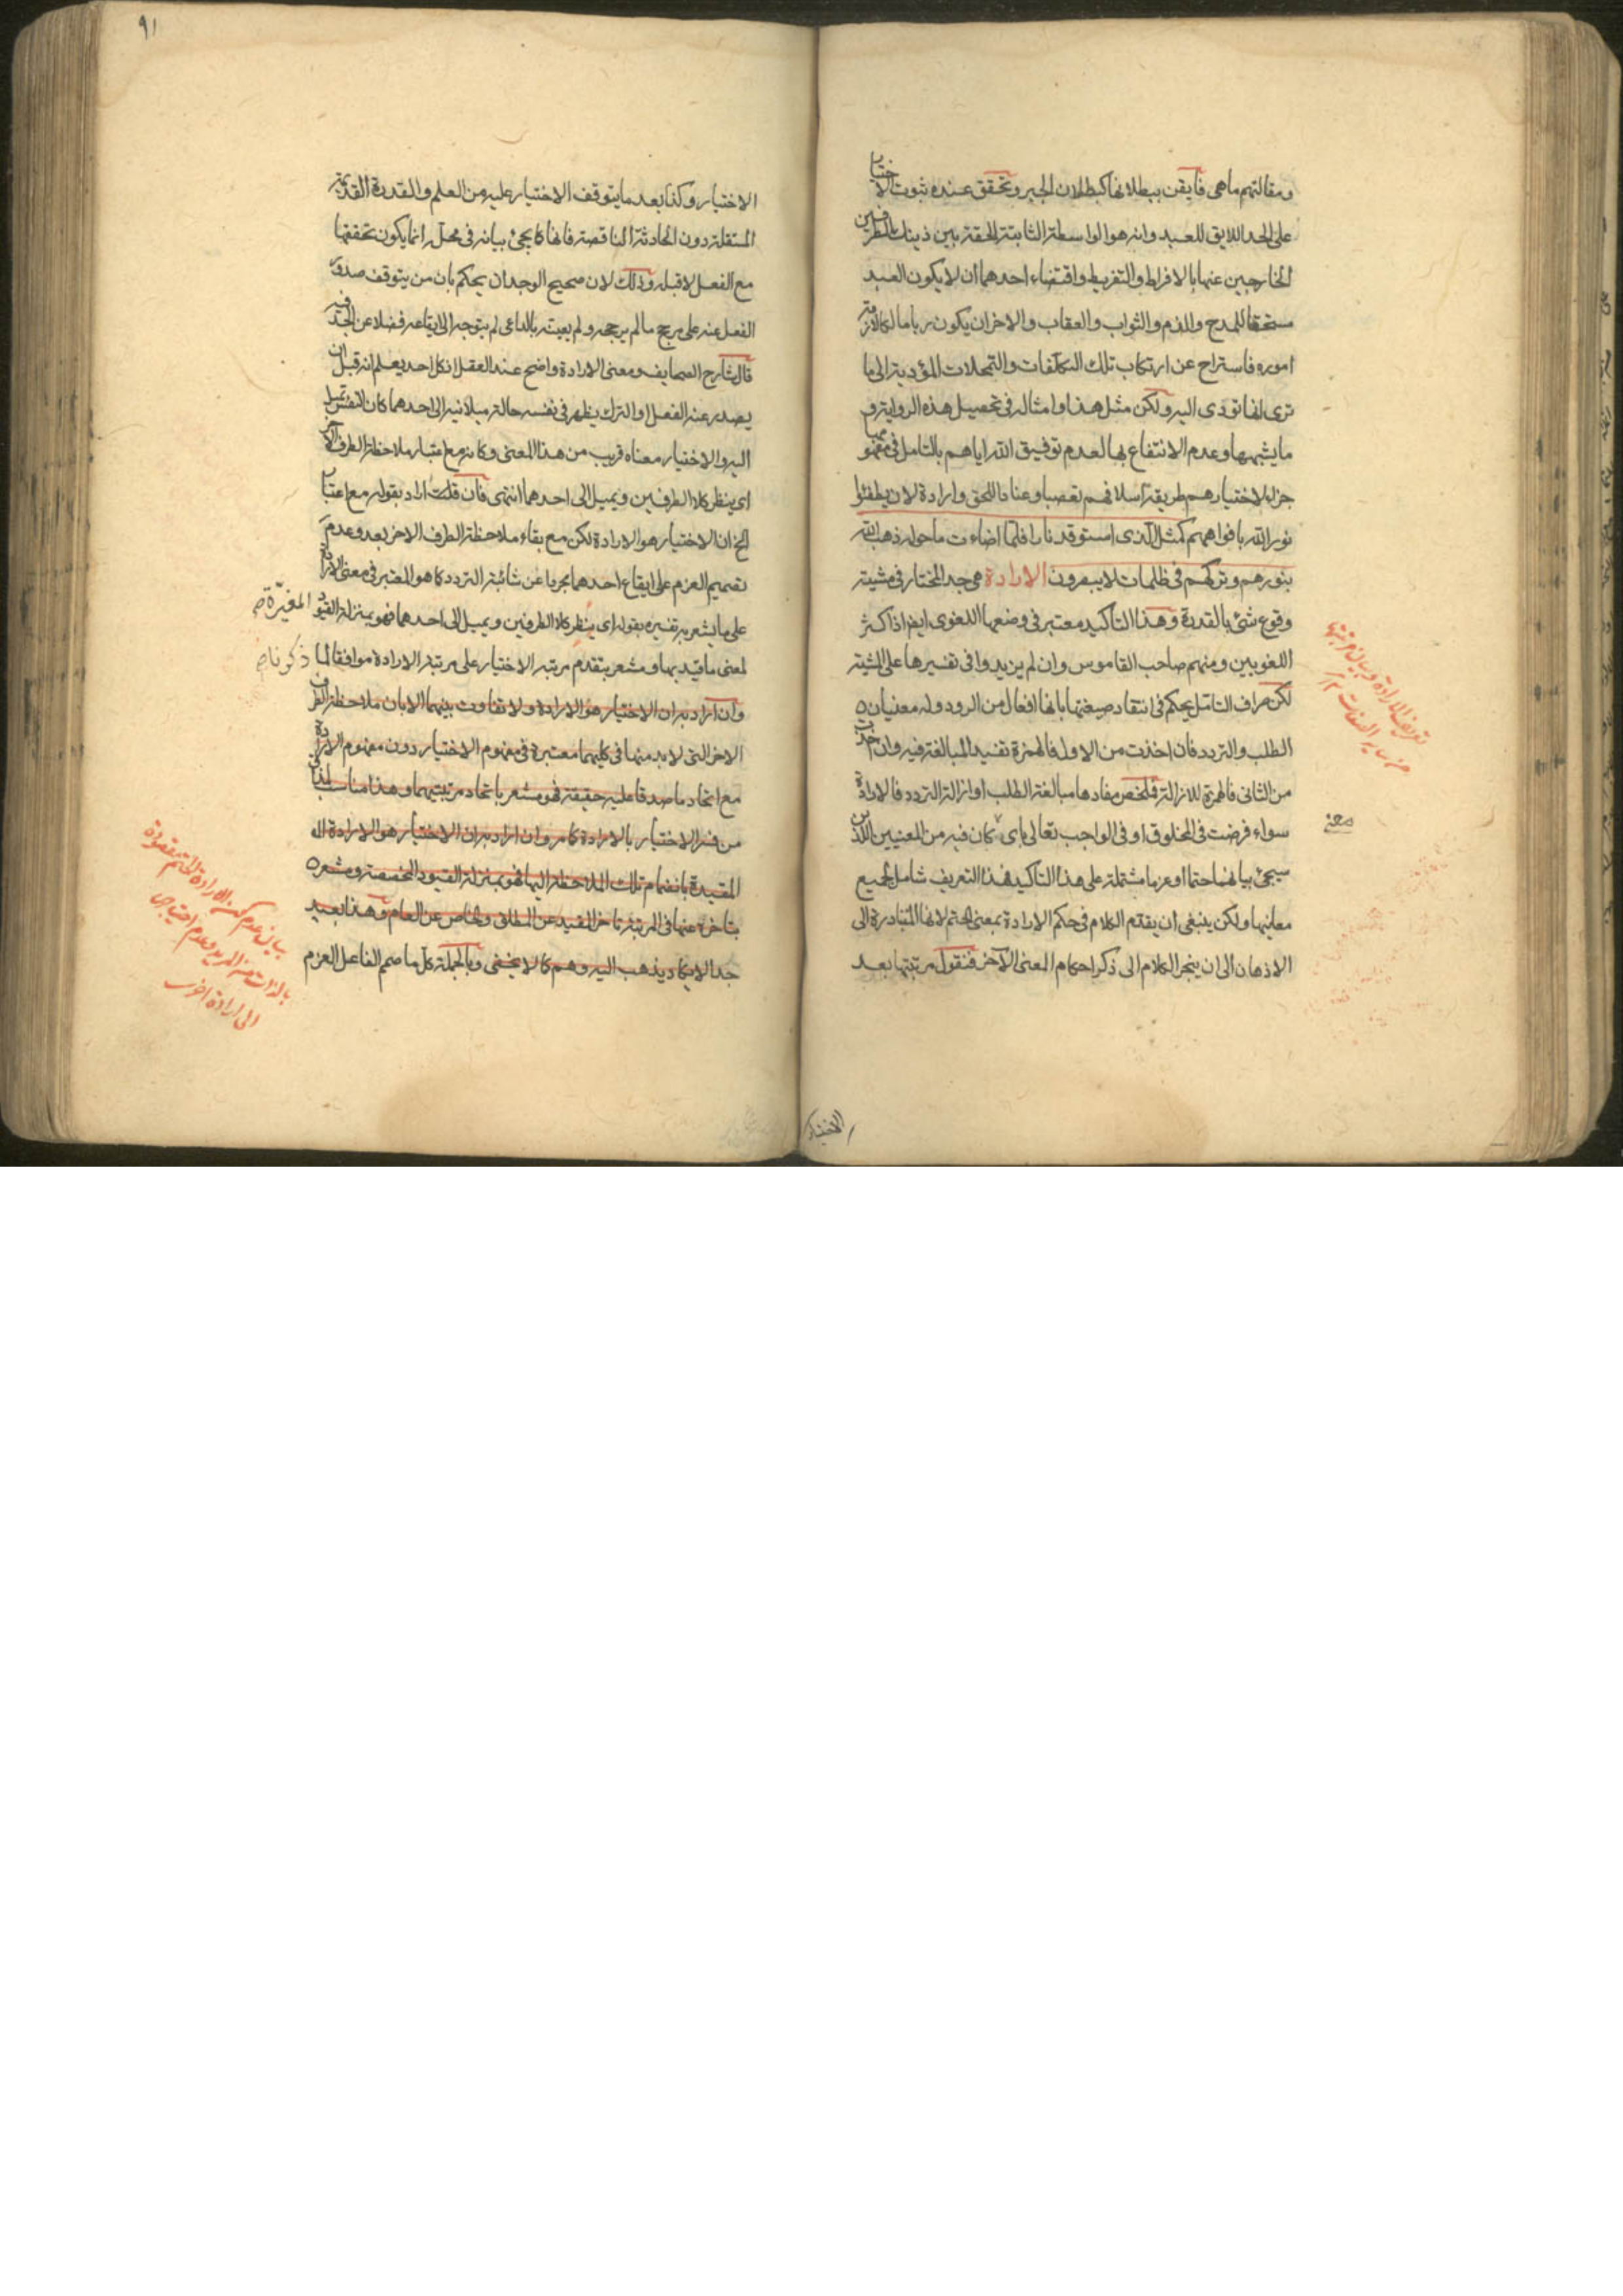 ومقالتهم ماهى فأيقن ببطلانها كبطلان الجبر وتحقق عنده ثبوت الاختيار
على الحد اللايق للعبد وانه هو الواسطة الثابتة الحقة بين ذينك الطرفين
الخارجين عنها بالافراط والتفريط واقتضاء احدهما ان لا يكون العبد
مستحقا للمدح والذم والثواب والعقاب والاخر ان يكون ربا مالكا لازمة
اموره فاستراح عن ارتكاب تلك التكلفات والتمحلات المؤدية الى ما
ترى لفا تودى اليه ولكن مثل هذا وامثاله فى تحصيل هذه الرواية و
ما يشبهها وعدم الانتفاع بها لعدم توفيق الله اياهم بالتامل فى مضمونها
جزاء لاختيارهم طريقة اسلافهم تعصبا وعنادا للحق وارادة لان يطفئوا
نور الله بافواههم كمثل الذى استوقد نارا فلما اضاءت ما حوله ذهب الله
بنورهم وتركهم فى ظلمات لا يبصرون الارادة هى جد المختار فى مشيته
وقوع شئ بالقدرة وهذا التاكيد معتبر فى وضعها اللغوى ايضا اذ اكثر
اللغويين ومنهم صاحب القاموس وان لم يزيدوا فى تفسيرها على المشية
لكن صراف التامل يحكم فى انتقاد صيغتها بانها افعال من الرود وله معنيان
الطلب والتردد فان اخذت من الاول فالهمزة تفيد المبالغة فيه وان اخذت
من الثانى فالهمزة للازالة فلخص مفادها مبالغة الطلب او ازالة التردد فالارادة
سواء فرضت فى المخلوق او فى الواجب تعالى باى كان فيه من المعنيين اللذين
سيجئ بيانهما حتما او عزما مشتملة على هذا التاكيد فهذا التعريف شامل لجميع
معانيها ولكن ينبغى ان يقدم الكلام فى حكم الارادة بمعنى الحتم لانها المتبادرة الى
الاذهان الى ان ينجر الكلام الى ذكر احكام المعنى الآخر فنقول مرتبتها بعد
معنى
تعريف الارادة وبيان مرتبتها
من ساير الصفات
الاختيار
٩١
الاختيار وكذا بعد ما يتوقف الاختيار عليه من العلم والقدرة القديمة
المستقلة دون الحادثة الناقصة فانها كما يجئ بيانه فى محله انما يكون تحققها
مع الفعل لا قبله وذلك لان صحيح الوجدان يحكم بان من يتوقف صدور
الفعل عنه على مرجح ما لم يرجحه ولم يبعثه بالداعى لم يتوجه الى ايقاعه فضلا عن الجد فيه
قال شارح الصحايف ومعنى الارادة واضح عند العقل ان كل احد يعلم انه قبل ان
يصدر عنه الفعل او الترك يظهر فى نفسه حالة ميلانية الى احدهما كان النفس تميل
اليه والاختيار معناه قريب من هذا المعنى وكانه مع اعتبار ملاحظة الطرف الآخر
اى ينظر كلا الطرفين ويميل الى احدهما انتهى فان قلت اراد بقوله مع اعتبار
الخ ان الاختيار هو الارادة لكن مع بقاء ملاحظة الطرف الاخر بعد وعدم
تصميم العزم على ايقاع احدهما مجردا عن شائبة التردد كما هو المعتبر فى معنى الارادة
على ما يشعر به تفسيره بقوله اى ينظر كلا الطرفين ويميل الى احدهما فهو بمنزلة القيود المغيرة صح
لمعنى ما قيد بها ومشعر بتقدم مرتبة الاختيار على مرتبة الارادة موافقا لما ذكرنا صح
وان اراد به ان الاختيار هو الارادة ولا تفاوت بينهما الا بان ملاحظة الطرف
الاخر التى لا بد منها فى كليهما معتبرة فى مفهوم الاختيار دون مفهوم الارادة
مع اتحاد ما صدقا عليه حقيقة فهو مشعر باتحاد مرتبتيهما وهذا مناسب لمذاق
من فسر الاختيار بالارادة كما مر وان اراد به ان الاختيار هو الارادة
المقيدة بانضمام تلك الملاحظة اليها فهو بمنزلة القيود المخصصة ومشعر
بتاخره عنها فى المرتبة تاخر المقيد عن المطلق والخاص عن العام وهذا بعيد
جدا لا يكاد يذهب اليه وهم كما لا يخفى وبالجملة كل ما صمم الفاعل العزم
بيان عدم كون الارادة الحتم مقصودة
بالذات من المريد وعدم احتياجها
الى ارادة اخرى